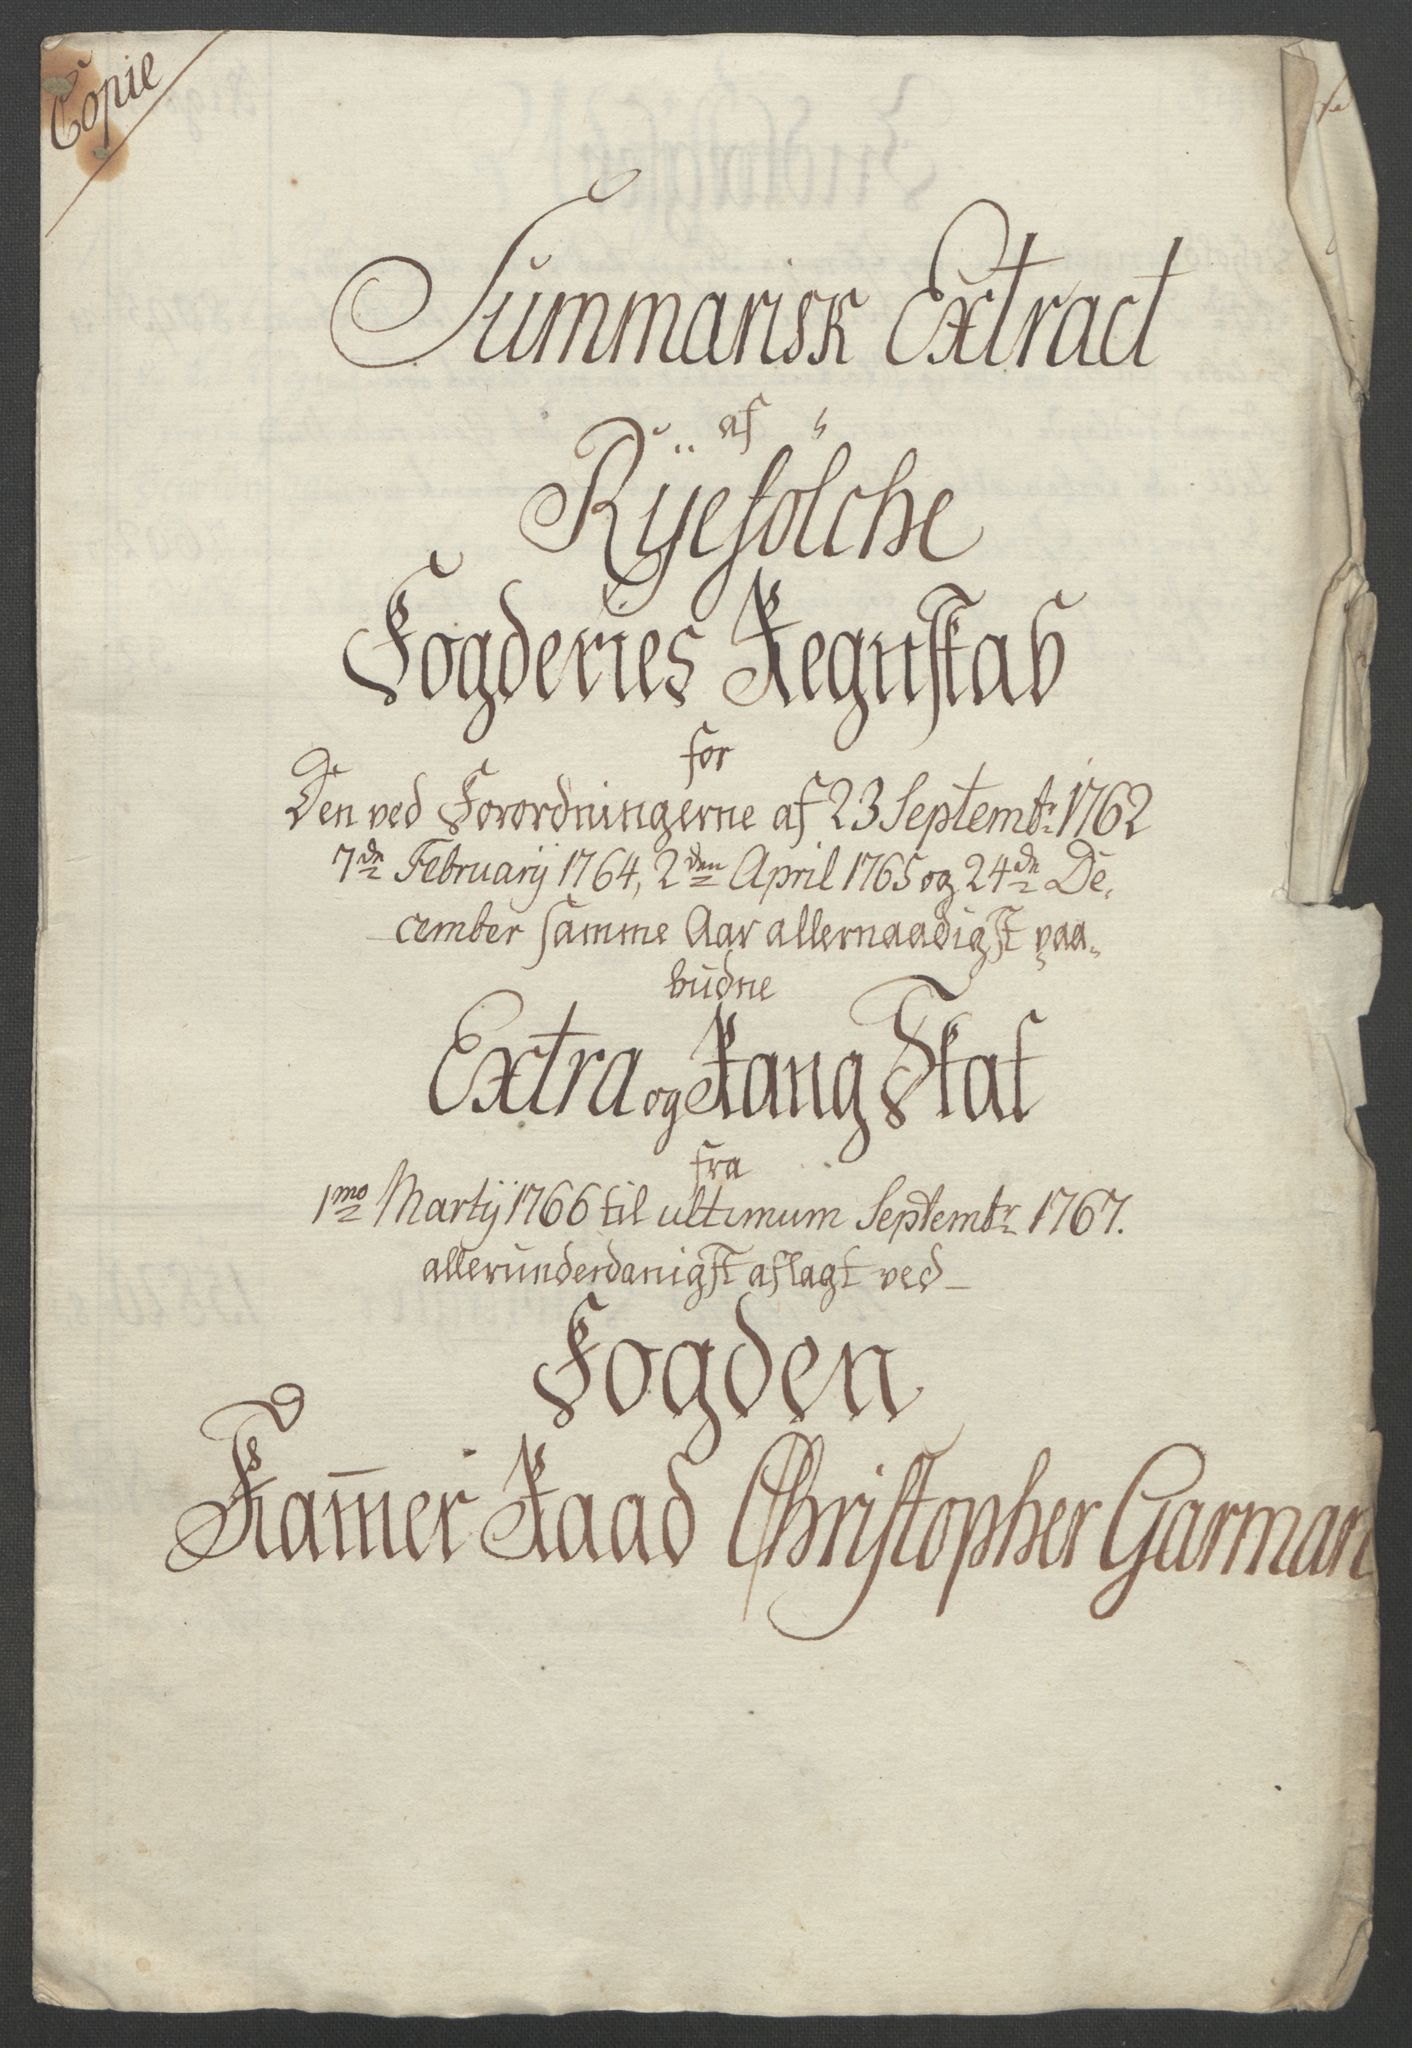 Copie
Summarisk Extract
af
Rÿefölche
Fogderies Regnskab
for
Den ved Forordningerne af 23 Septembr. 1762
7de Februarij 1764, 2den April 1765 og 24de De-
cember samme Aar allernaadigst paa-
budne
Extra og Rang Skat
fra
1mo Martij 1766 til ultimum Septembr 1767.
allerunderdanigst aflagt ved
Fogden
Kam̄er Raad Christopher Garman